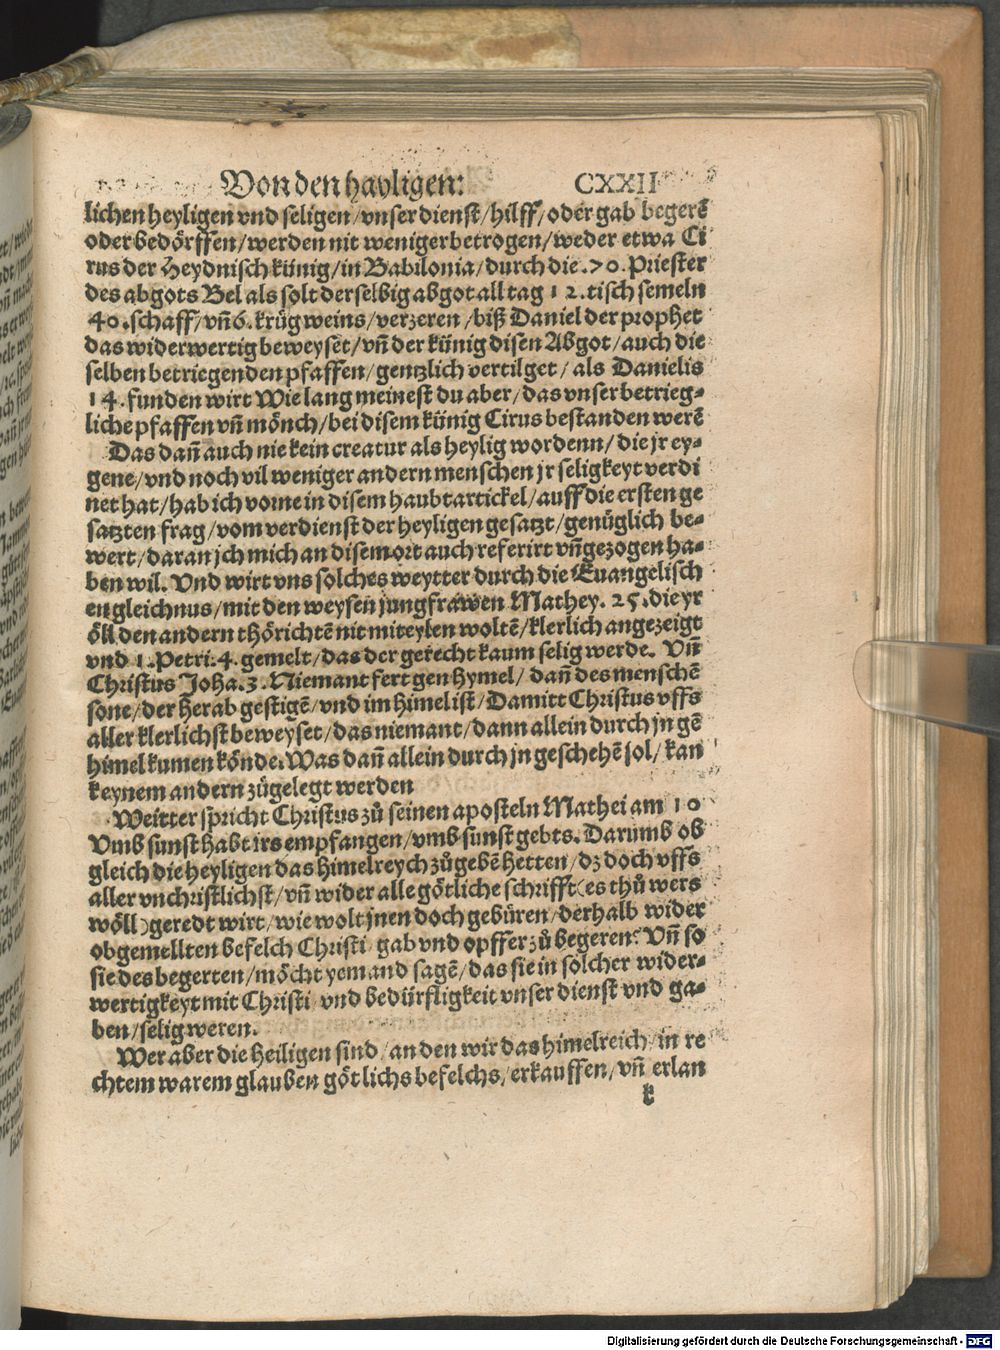 Von den hayligen: CXXII
lichen heyligen vnd seligen/vnser dienst/hilff/oder gab begerē
oder bedörffen/werden nit weniger betrogen/weder etwa Ci
rus der Heydnisch künig/in Babilonia/durch die .70. Priester
des abgots Bel als solt derselbig abgot all tag 12. tisch semeln
40. schaff/vñ 6. krüg weins/verzeren/biß Daniel der prophet
das widerwertig beweyset/vñ der künig disen Abgot/auch die
selben betriegenden pfaffen/gentzlich vertilget/als Danielis
14. funden wirt Wie lang meinest du aber/das vnser betrieg-
liche pfaffen vñ mönch/bei disem künig Cirus bestanden werē
Das dañ auch nie kein creatur als heylig wordenn/die jr ey-
gene/vnd noch vil weniger andern menschen jr seligkeyt verdi
net hat/hab ich vorne in disem haubtartickel/auff die ersten ge
satzten frag/vom verdienst der heyligen gesatzt/genüglich be-
wert/daran jch mich an disem ort auch referirt vñ gezogen ha-
ben wil. Vnd wirt vns solches weytter durch die Euangelisch
en gleichnus/mit den weysen jungfrawen Mathey. 25. die yr
öll den andern thörichtē nit miteylen woltē/klerlich angezeigt
vnd 1. Petri. 4. gemelt/das der gerecht kaum selig werde. Vñ
Christus Joha. 3. Niemant fert gen hymel/dañ des menschē
sone/der herab gestigē/vnd im himel ist/Damitt Christus vffs
aller klerlichst beweyset/das niemant/dann allein durch jn gē
himel kumen könde. Was dañ allein durch jn geschehē sol/kan
keynem andern zůgelegt werden
Weitter spricht Christus zů seinen aposteln Mathei am 10
Vmb sunst habt irs empfangen/vmb sunst gebts. Darumb ob
gleich die heyligen das himelreych zů gebē hetten/dz doch vffs
aller vnchristlichst/vñ wider alle götliche schrifft (es thů wers
wöll) geredt wirt/wie wolt jnen doch gebüren/derhalb wider
obgemellten befelch Christi/gab vnd opffer zů begeren? Vñ so
sie des begerten/möcht yemand sagē/das sie in solcher wider-
wertigkeyt mit Christi/vnd bedürfligkeit vnser dienst vnd ga-
ben/selig weren.
Wer aber die Heiligen sind/an den wir das himelreich/in re
chtem warem glauben götlichs befelchs/erkauffen/vñ erlan
k
Digitalisierung gefördert durch die Deutsche Forschungsgemeinschaft - DFG